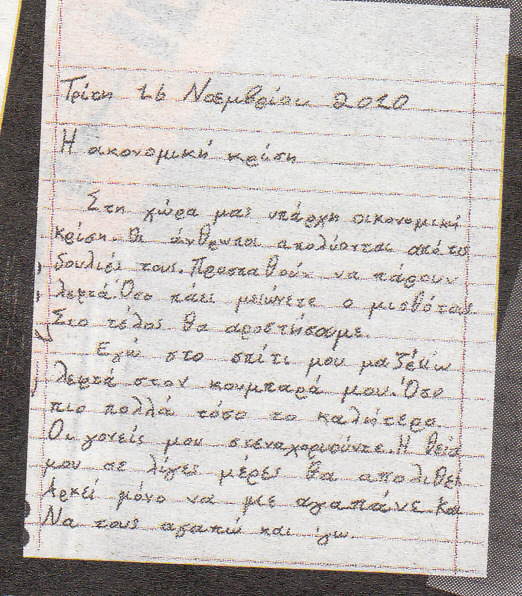 Τρίτη 16 Νοεμβρίου 2010
Η ακονομική κρίση
Στη χώρα μας υπάρχη οικονομική
κρίση. Οι άνθρωποι απολύονται από τις
δουλιές τους. Προσπαθούν να πάρουν
λεφτά. Όσο πάει μειώνετε ο μισθός τους
Στο τέλος θα αροστήσουμε.
Εγώ στο σπίτι μου μαζέυω
λεφτά στον κουμπαρά μου. Όσο
πιο πολλά τόσο το καλήτερο.
Οι γονείς μου στεναχοριούντε. Η θεία
μου σε λίγες μέρες θα απολιθεί
Αρκεί μόνο να με αγαπάνε και
Να τους αγαπώ και εγω.